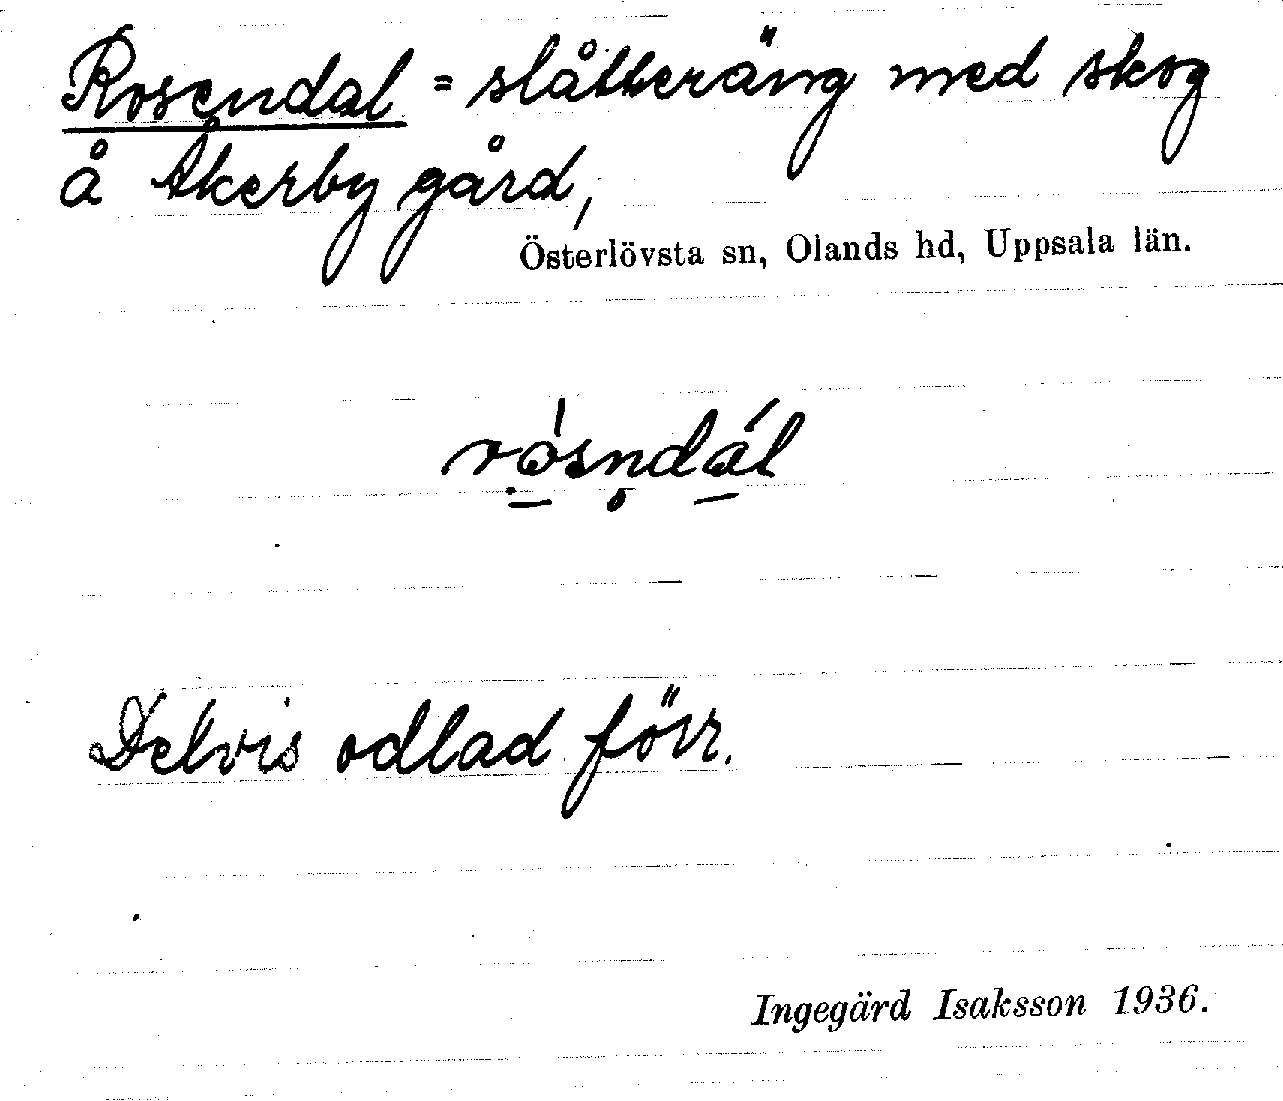 Rosendal = slåtteräng med skog
å Åkerby gård,
Österlövsta sn, Olands hd, Uppsala län.
rósn̥dál
Delvis odlad förr.
Ingegärd Isaksson 1936.